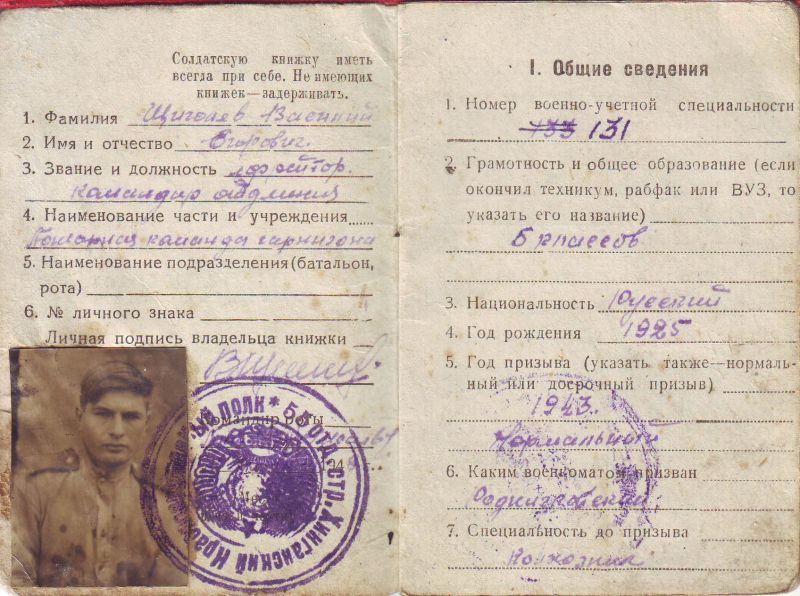 Солдатскую книжку иметь
всегда при себе. Не имеющих
книжек—задерживать.
1. Фамилия Щиголев Василий
2. Имя и отчество Егорович
3. Звание и должность ефрейтор.
командир отделения
4. Наименование части и учреждения
Пожарная команда гарнизона
5. Наименование подразделения (батальон,
рота)
6. № личного знака
Личная подпись владельца книжки
Командир роты
194
55 отд. стр. Хинганский Красно
полк
I. Общие сведения
1. Номер военно-учетной специальности
133 131
2. Грамотность и общее образование (если
окончил техникум, рабфак или ВУЗ, то
указать его название)
3. Национальность Русский
4. Год рождения 1925
5. Год призыва (указать также—нормаль-
ный или досрочный призыв)
1943.
нормальный
6. Каким военкоматом призван
7. Специальность до призыва
колхозник